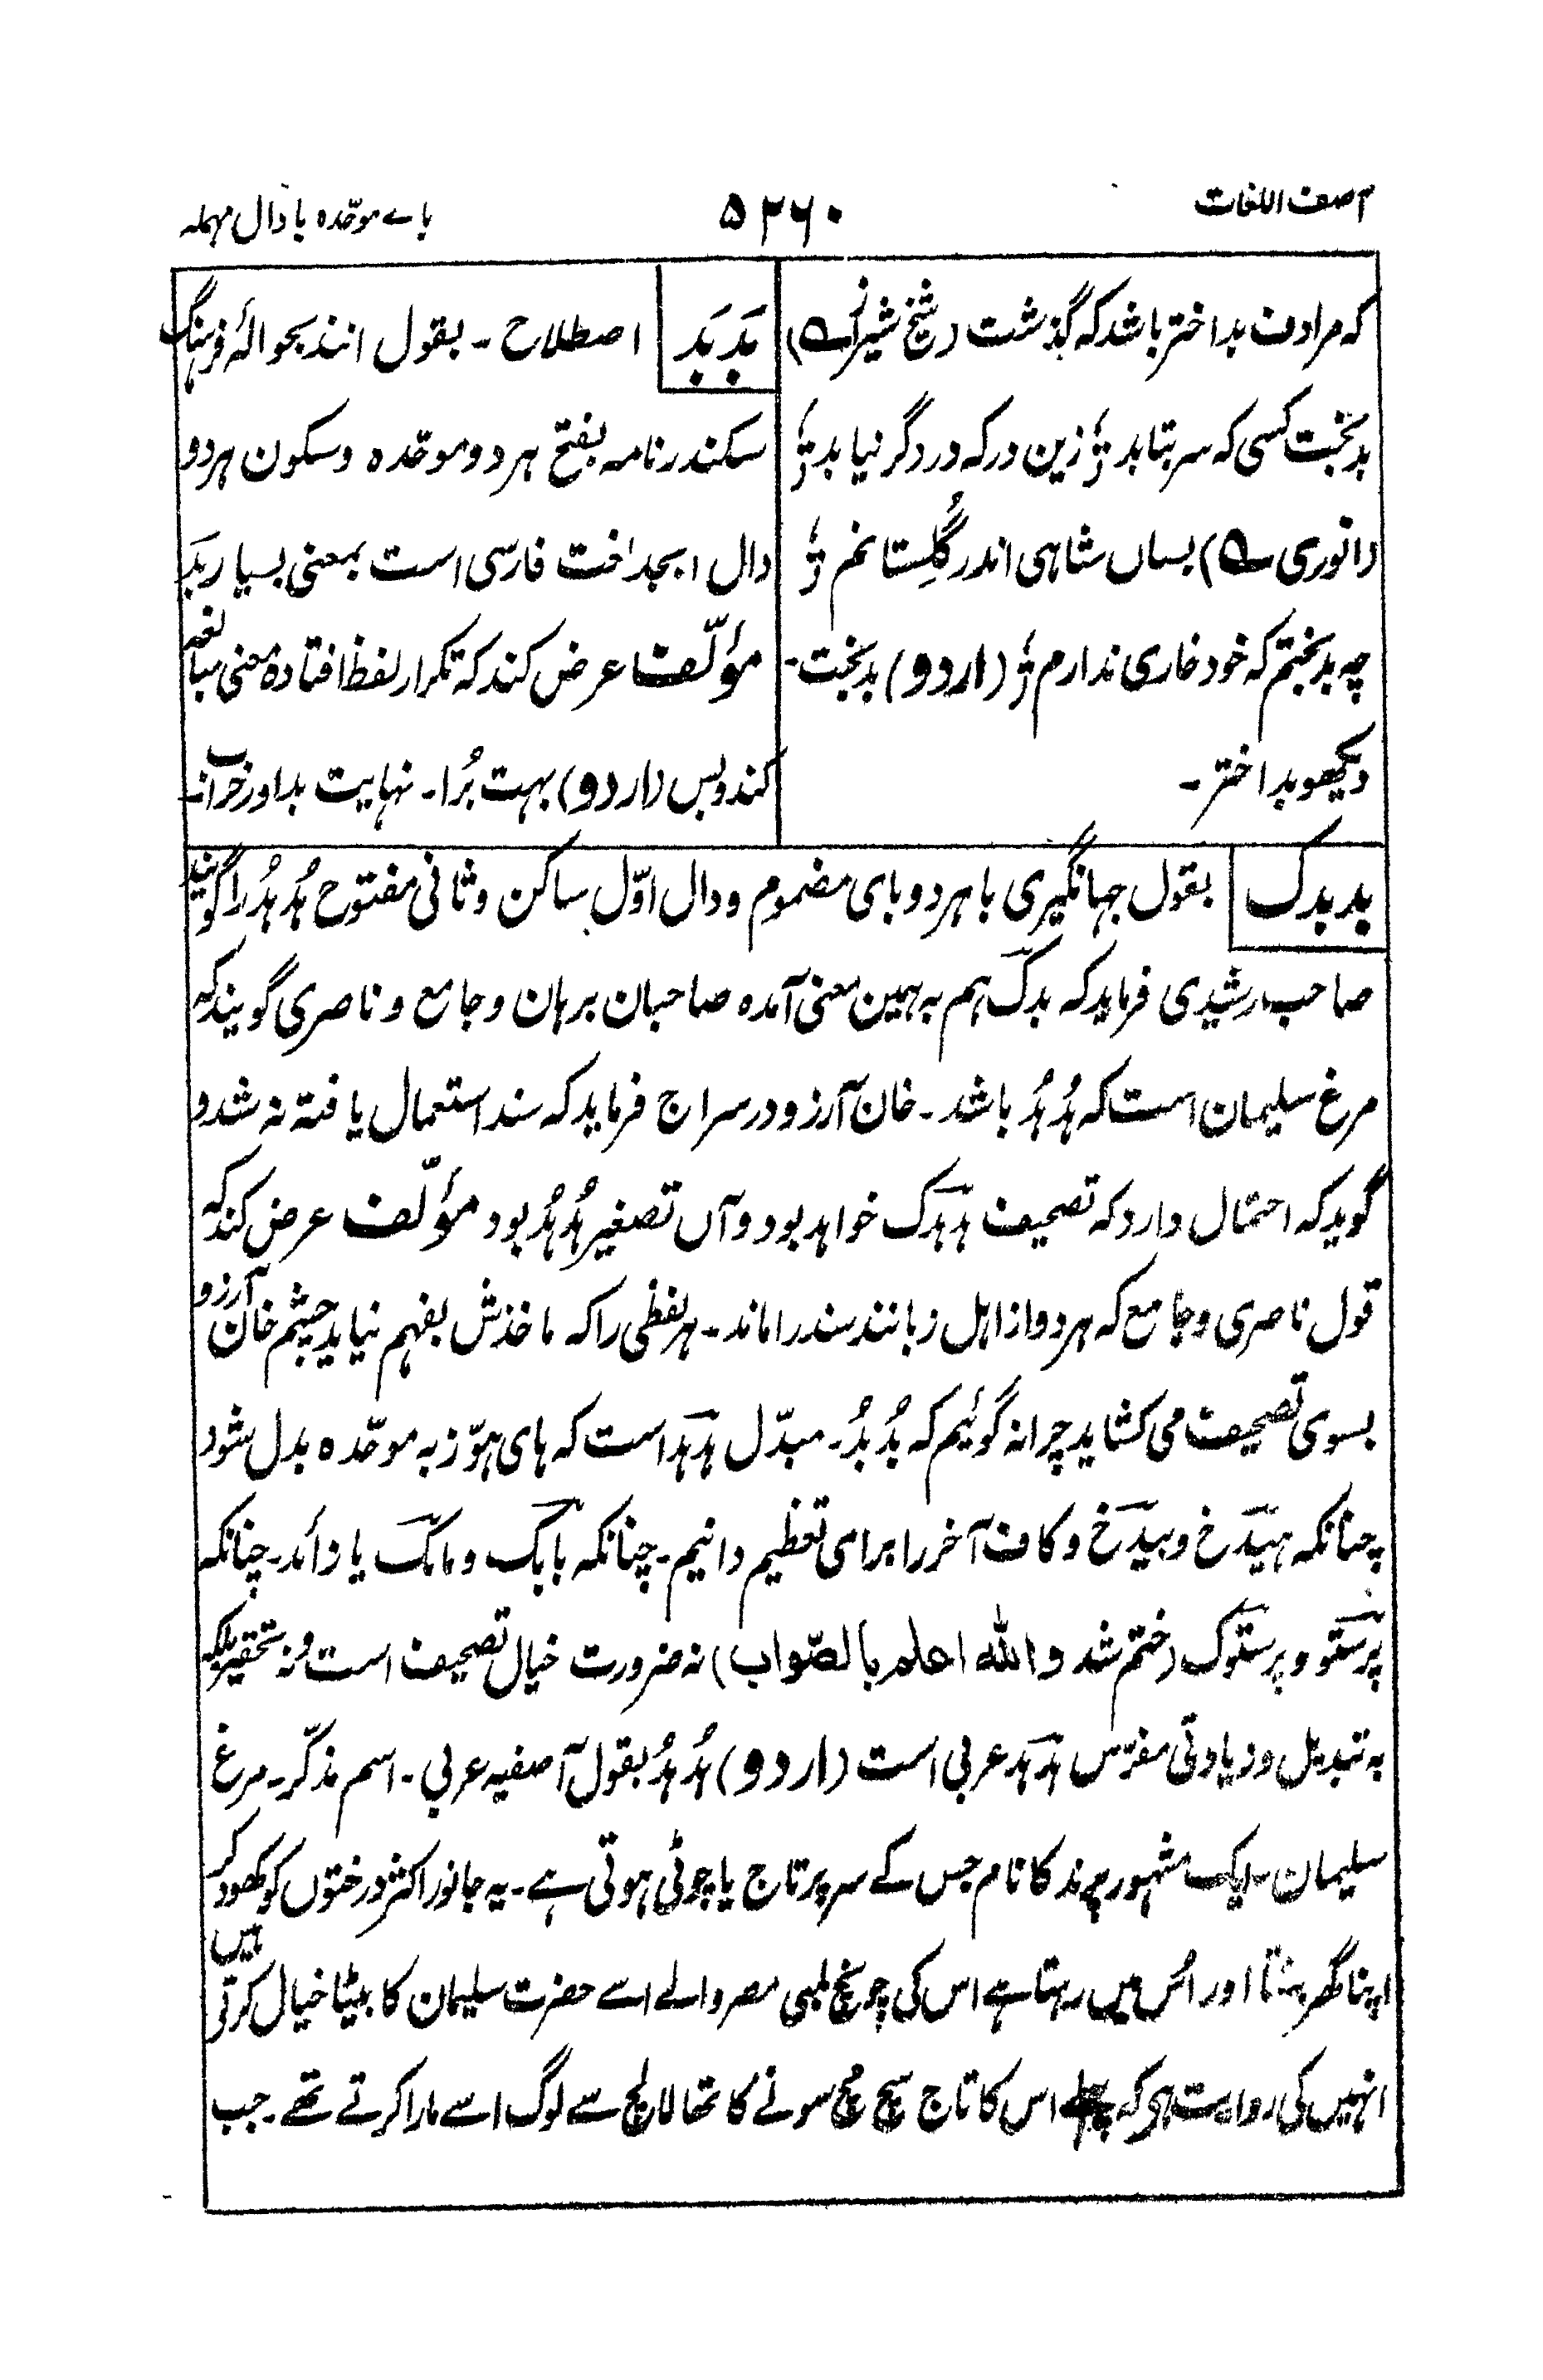 آصف اللغات
۵۲۶۰
باے موحّدہ با دال مہملہ
کہ مرادف بداختر باشد کہ گذشت (شیخ شیراز ؎)
بدبخت کسی کہ سر بتابد ؛ زین در کہ در دگر نیابد ؛
(انوری ؎) بسان شاہی اندر گُلِستانم ؛
چہ بدبختم کہ خود خاری ندارم ؛ (اردو) بدبخت۔
دیکھو بداختر۔
بَدبَد اصطلاح۔ بقول انند بحوالۂ فرہنگ
سکندرنامہ بفتح ہر دو موحّدہ و سکون ہر دو
دال ابجد لغت فارسی است بمعنی بسیار بَد
مؤلّف عرض کند کہ تکرار لفظ افتادہ معنی مبالغہ
کند و بس (اردو) بہت بُرا۔ نہایت بد اور خراب۔
بدبدک بقول جہانگیری با ہر دو بای مضموم و دال اوّل ساکن و ثانی مفتوح ہُدہُد را گویند
صاحب رشیدی فرماید کہ بدک ہم بہ ہمین معنی آمدہ صاحبان برہان و جامع و ناصری گویند کہ
مرغ سلیمان است کہ ہُدہُد باشد۔ خان آرزو در سراج فرماید کہ سند استعمال یافتہ نہ شد و
گوید کہ احتمال دارد کہ تصحیف ہدہدک خواہد بود و آں تصغیر ہُدہُد بود مؤلّف عرض کند کہ
قول ناصری و جامع کہ ہر دو از اہل زبانند سند را ماند۔ ہر لفظی را کہ ماخذش بفہم نیاید چشم خان آرزو
بسوی تصحیف می کشاید چرا نہ گوئیم کہ بُدبُد۔ مبدّل ہدہد است کہ ہای ہوّز بہ موحّدہ بدل شود
چنانکہ ہیدَخ و بیدَخ و کاف آخر را برای تعظیم دانیم۔ چنانکہ بابک و مامک یا زائد۔ چنانکہ
پرستو و پرستوک (ختم شد واللہ اعلم بالصّواب) نہ ضرورت خیال تصحیف است و نہ تحقیر بلکہ
بہ تبدیل و زیادتی مفرّس ہدہد عربی است (اردو) ہُدہُد بقول آصفیہ عربی۔ اسم مذکّر۔ مرغ
سلیمان۔ ایک مشہور پرند کا نام جس کے سر پر تاج یا چوٹی ہوتی ہے۔ یہ جانور اکثر درختوں کو کھود کر
اپنا گھر بنتا اور اُس میں رہتا ہے اس کی چونچ لمبی مصر والے اسے حضرت سلیمان کا بیٹا خیال کرتی ہیں
انہیں کی روایت ہی کہ پہلے اس کا تاج سچ مچ سونے کا تھا لالچ سے لوگ اسے مارا کرتے تھے۔ جب